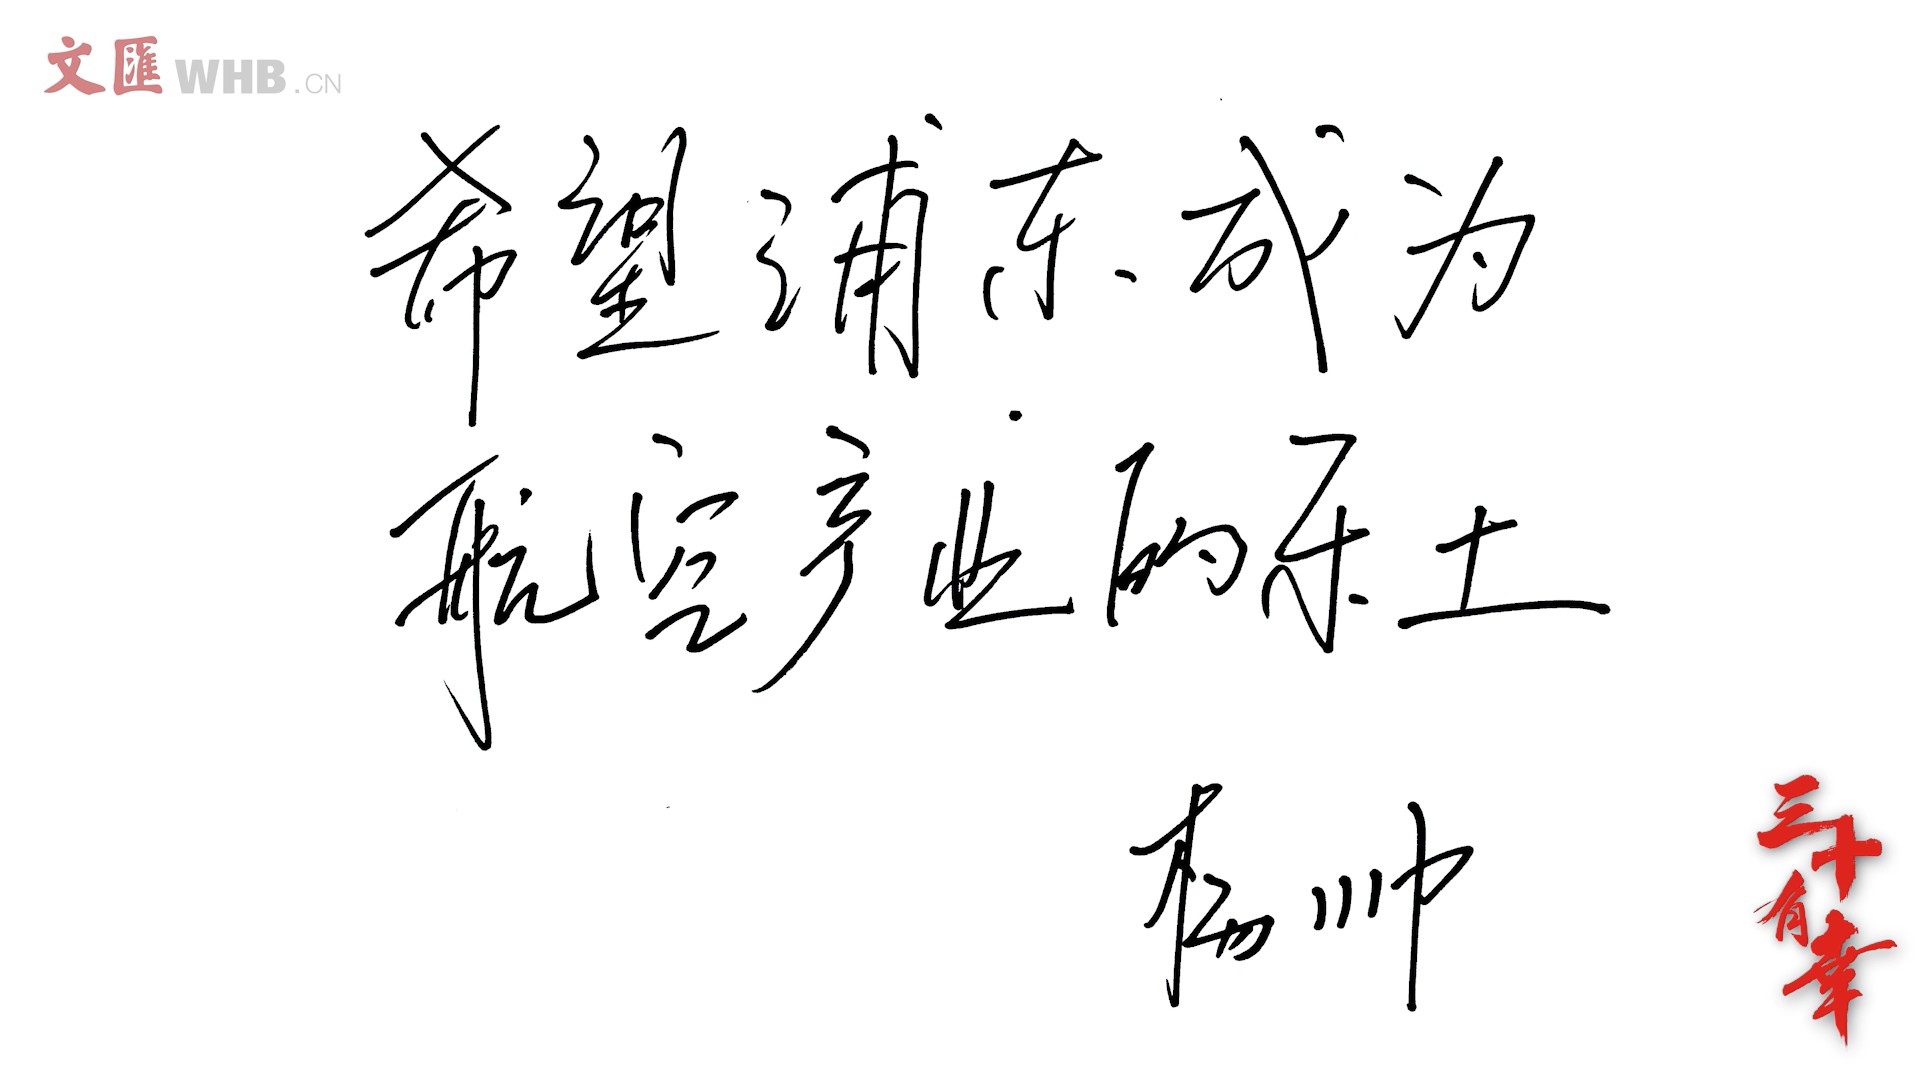 文匯 WHB.CN
希望浦东成为
航空产业的乐土
杨帅
三十有幸